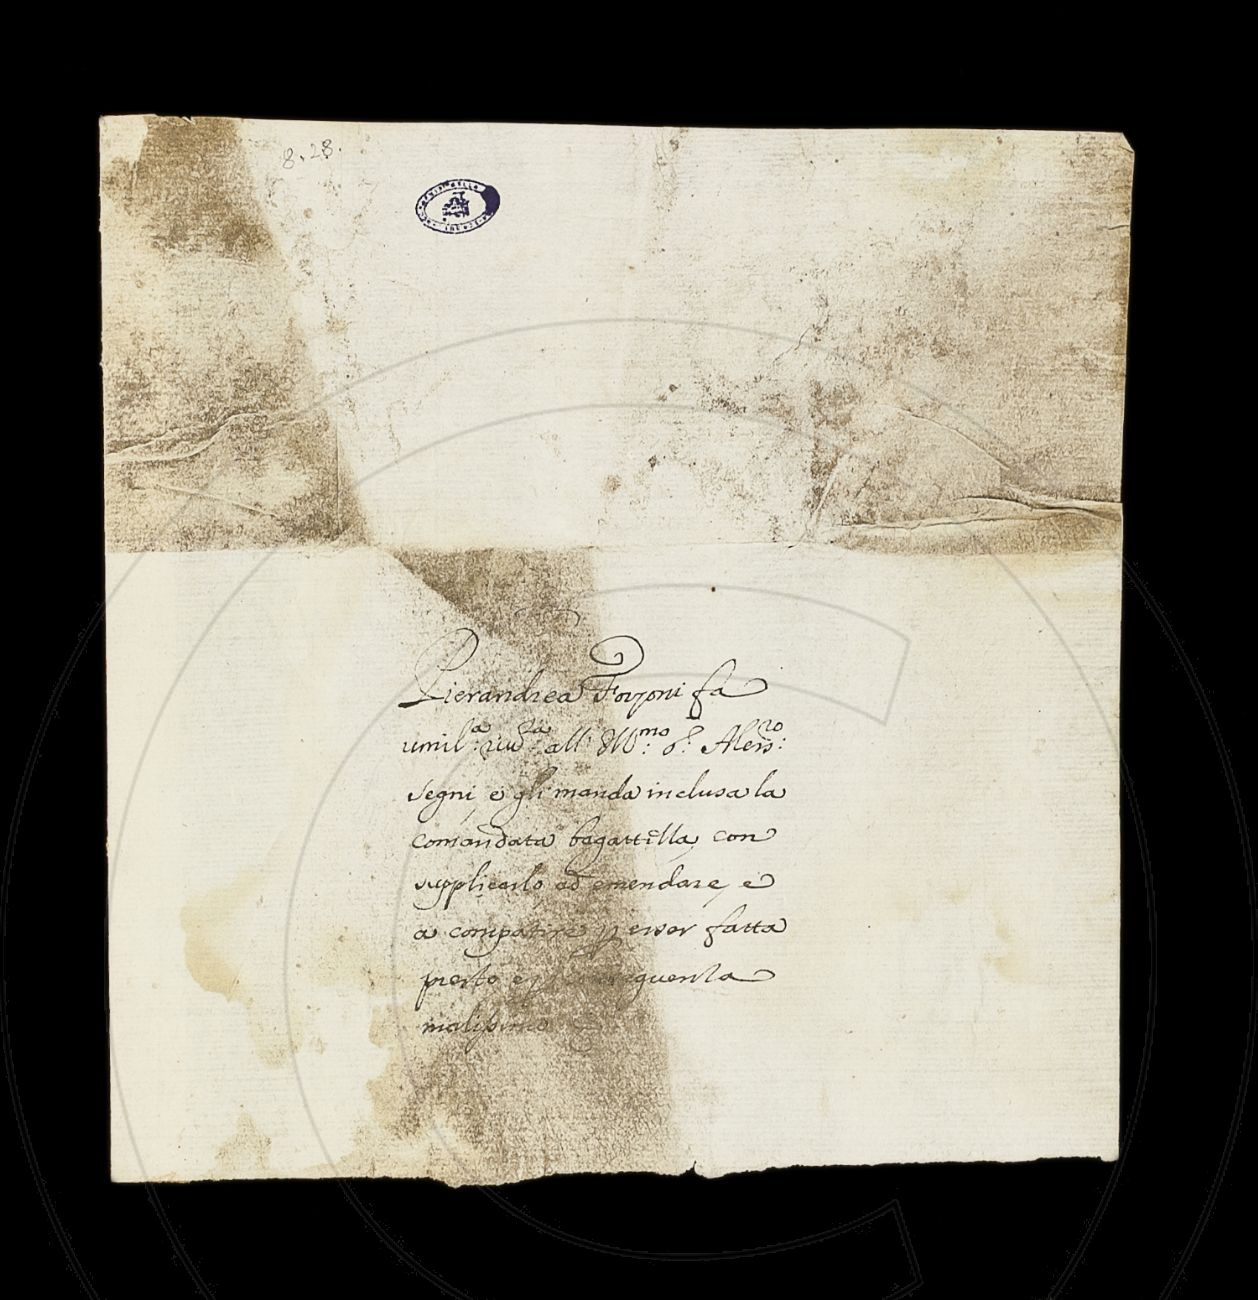 8.28.
Pierandrea Forzoni fa
umil.ª riv.za all' Ill.mo S.r Aless.ro
Segni, e gli manda inclusa la
comandata bagattella, con
supplicarlo ad emendare, e
a compatire p esser fatta
presto e
malissimo